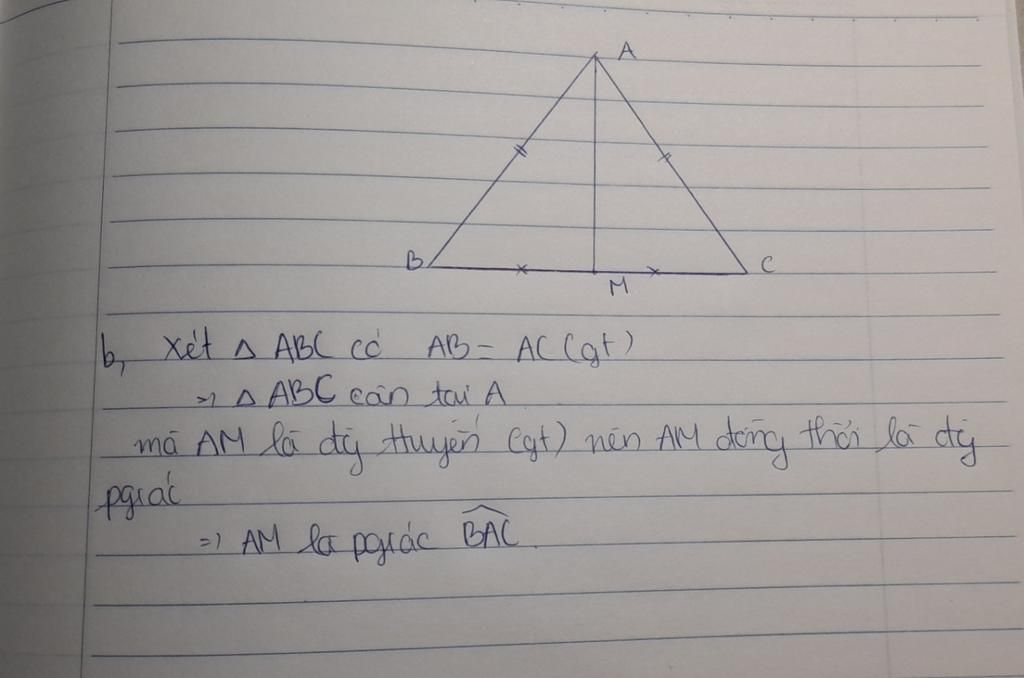 A
B
C
M
b, Xét △ ABC có AB = AC (gt)
=> △ ABC cân tại A
mà AM là đg ttuyến (gt) nên AM đồng thời là đg
pgiác
=> AM là pgiác BAC